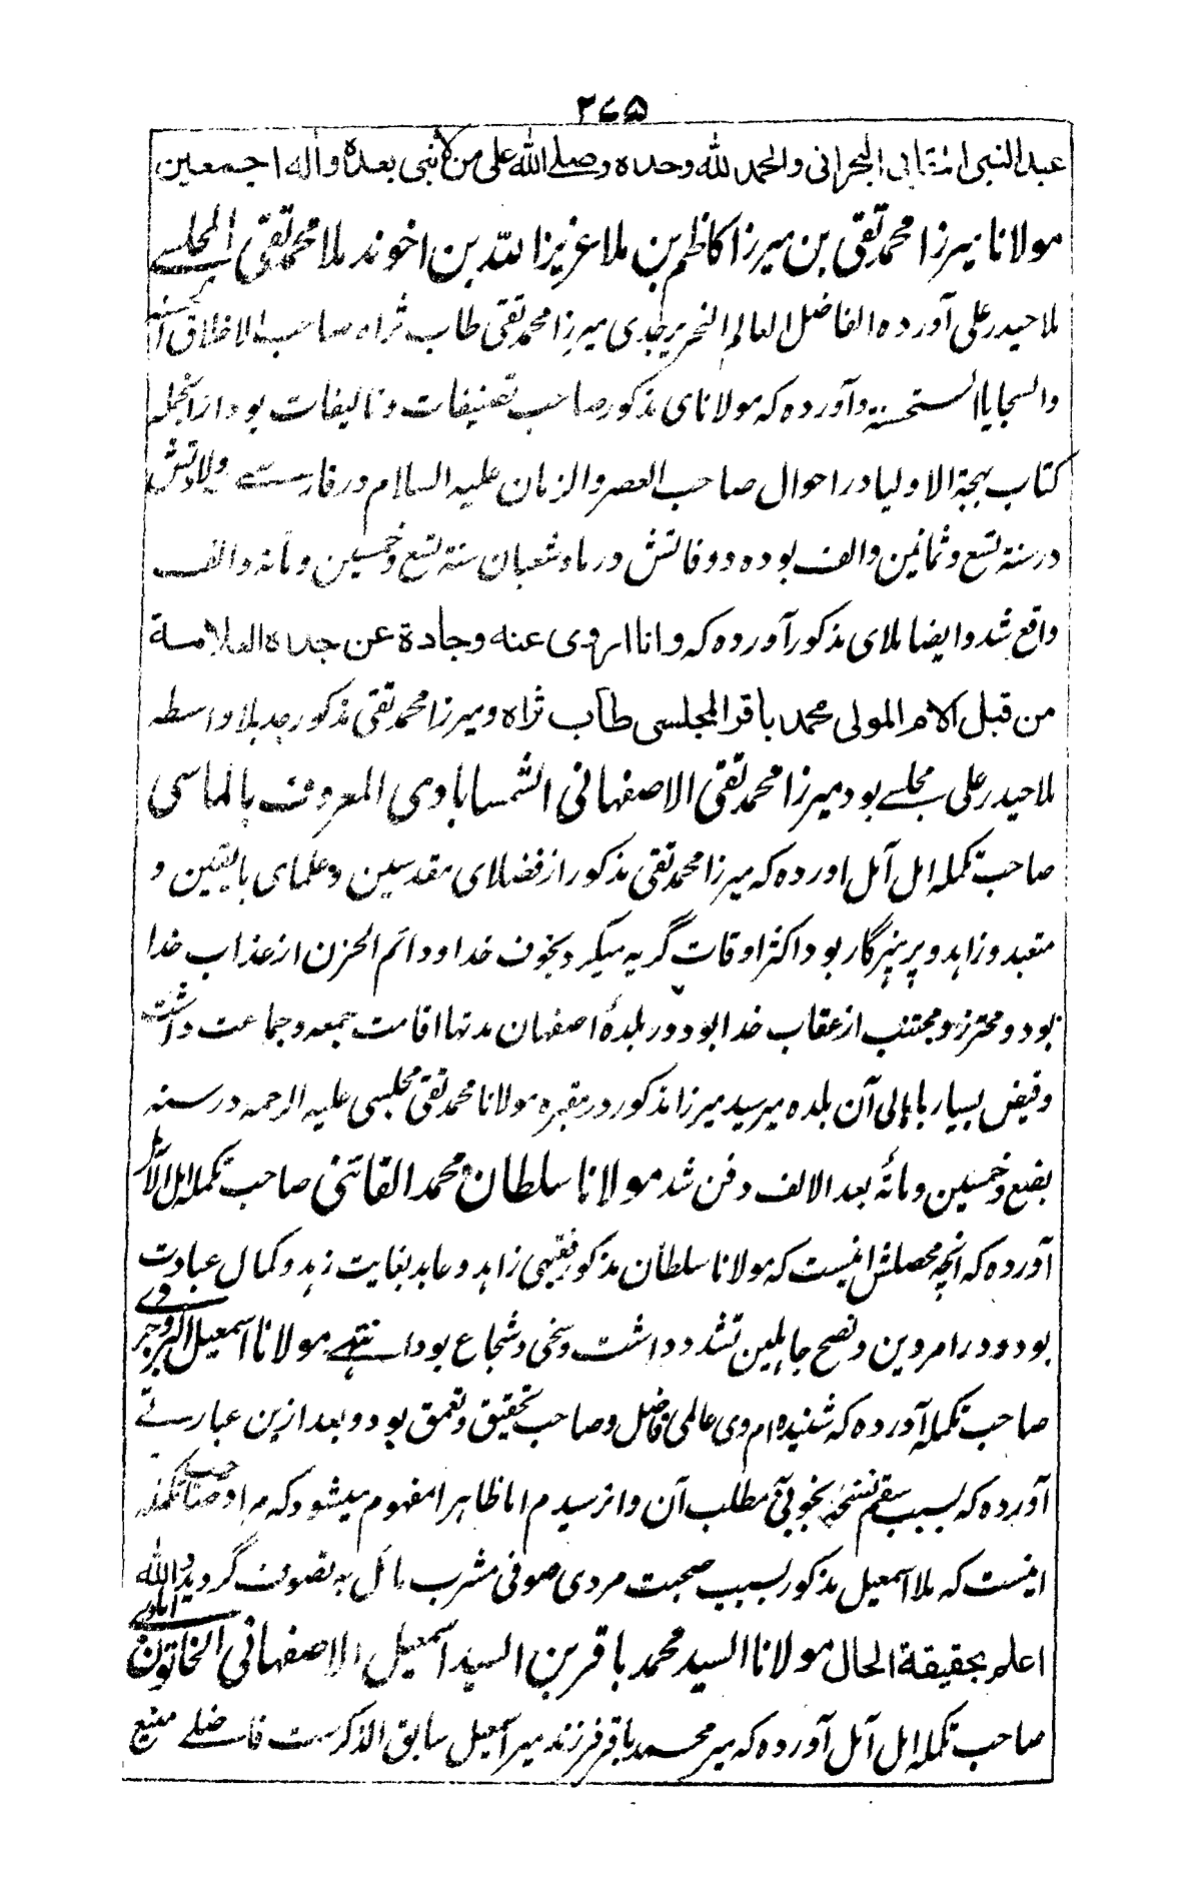 ۲۶۵
عبد النبی البحرانی والحمد لله وحده وصلی الله علی من لا نبی بعده وآله اجمعین
مولانا میرزا محمد تقی بن میرزا کاظم بن ملا عزیز الله بن اخوند ملا محمد تقی المجلسے
ملا حیدر علی آورده الفاضل العالم النحریر جدی میرزا محمد تقی طاب ثراه صاحب الاخلاق الحسنه
والسجایا المستحسنة وآورده که مولانای مذکور صاحب تصنیفات و تالیفات بود از انجمله
کتاب بهجة الاولیا در احوال صاحب العصر والزمان علیه السلام در فارسے ولادتش
در سنة تسع و ثمانین والف بوده و وفاتش در ماه شعبان سنة تسع و خمسین و مأته والف
واقع شد وایضا ملای مذکور آورده که وانا اروی عنه وجادة عن جده العلامة
من قبل الام المولی محمد باقر المجلسی طاب ثراه ومیرزا محمد تقی مذکور جد بلا واسطه
ملا حیدر علی مجلسے بود میرزا محمد تقی الاصفهانی الشمسابادی المعروف بالماسی
صاحب تکمله امل آمل اورده که میرزا محمد تقی مذکور از فضلای مقدسین و علمای بایقین و
متعبد و زاهد و پرهیزگار بود اکثر اوقات گریه میکرد بخوف خدا و دائم الحزن از عذاب خدا
بود و محترز و مجتنب از عقاب خدا بود و در بلدهٔ اصفهان مدتها اقامت جمعه و جماعت داشت
و فیض بسیار باهالی آن بلده میرسید میرزا مذکور در مقبره مولانا محمد تقی مجلسی علیه الرحمه در سنه
بضع و خمسین و مائه بعد الالف دفن شد مولانا سلطان محمد القائنی صاحب تکمله امل الآمل
آورده که انچه محصلش اینست که مولانا سلطان مذکور فقیهی زاهد و عابد بغایت زهد و کمال عبادت
بود و در امر دین و نصح جاهلین تشدد داشت و سخی و شجاع بود انتهے مولانا اسمعیل البروجردے
صاحب تکمله آورده که شنیده ام وی عالمی فاضل و صاحب تحقیق و تعمق بود و بعد ازین عبارتے
آورده که بسبب سقم نسخه بخوبی بمطلب آن وا نرسیدم اما ظاهرا مفهوم میشود که مراد صاحب تکمله
اینست که ملا اسمعیل مذکور بسبب صحبت مردی صوفی مشرب مائل به تصوف گردید والله
اعلم بحقیقة الحال مولانا السید محمد باقر بن السید اسمعیل الاصفهانی الخاتون آبادے
صاحب تکمله امل آمل آورده که میر محمد باقر فرزند میر اسمعیل سابق الذکرست فاضلے منیع